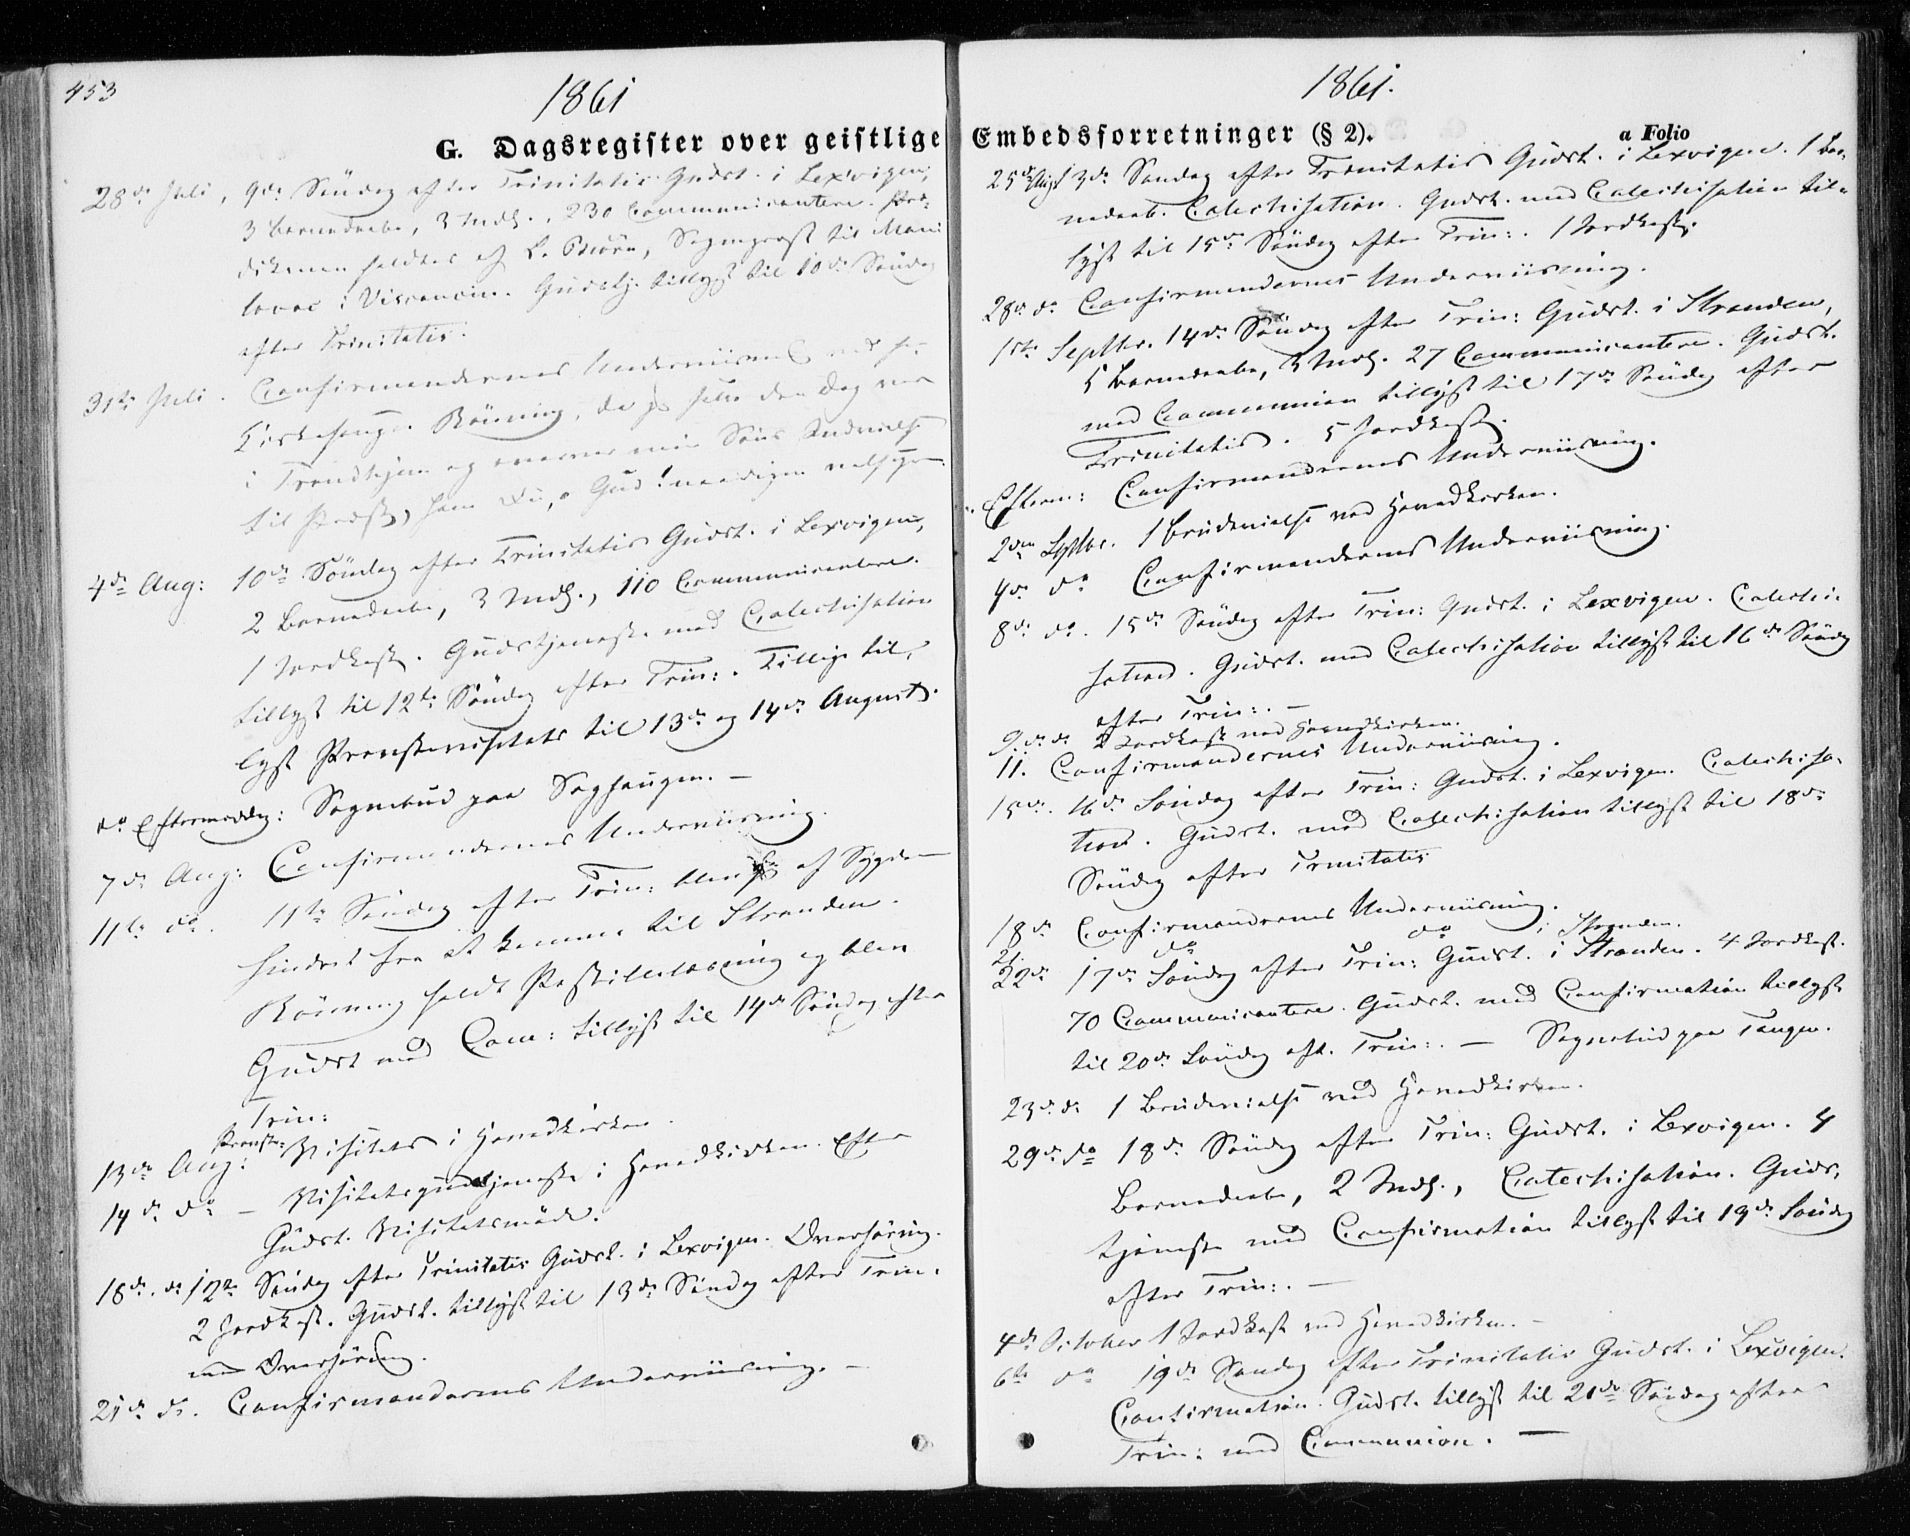 453
1861
G. Dagsregister over geistlige
28de Juli, 9de Søndag efter Trinitatis Gudst. i Lexvigen,
3 Barnedaabe, 3 Indl., 230 Communicantere. Præ-
dikenen holdtes af L. Sognepræst til Mani
i Visconsin. Gudstj. tillyst til 10de Søndag
efter Trinitatis.
31te Juli. Confirmandernes Underviisning ved
Kirkesanger Rönning, da jeg selv den Dag var
i Trondhjem og min Søns Indvielse
til Præst, ham Du, o Gud! naadigen velsigne.
4de Aug: 10de Søndag efter Trinitatis Gudst. i Lexvigen,
2 Barnedaabe, 3 Indl., 110 Communicantere.
1 Jordkast. Gudstjeneste med Catechisation
tillyst til 12te Søndag efter Trin:. Tillige til-
lyst Provstevisitats til 13de og 14de August.
do Eftermiddag: Sognebud paa Saghaugen. —
7de Aug: Confirmandernes Underviisning.
11te do. 11te Søndag efter Trin: blev jeg af Sygdom
hindret fra at komme til Stranden.
Rönning holdt Postillelæsning og blev
Gudst med Com: tillyst til 14de Søndag efter
Trin:
13de Aug: Provste-Visitats i Hovedkirken.
14de do — Visitatsgudstjeneste i Hovedkirken. Efter
Gudst. Visitatsmöde.
18de do 12te Søndag efter Trinitatis Gudst. i Lexvigen. Overhøring.
2 Jordkast. Gudst. tillyst til 13de Søndag efter Trin.
med Overhøring.
21de do. Confirmandernes Underviisning. —
1861.
Embedsforretninger (§ 2).
a Folio
25de Augst 13de Søndag efter Trinitatis Gudst. i Lexvigen. 1 Bar-
nedaab. Catechisation. Gudst. med Catechisation til-
lyst til 15de Søndag efter Trin:. 1 Jordkast.
28de do Confirmandernes Underviisning.
1ste Septbr. 14de Søndag efter Trin: Gudst. i Stranden,
5 Barnedaabe, 3 Indl. 27 Communicantere. Gudst.
med Communion tillyst til 17de Søndag efter
Trinitatis. 5 Jordkast.
Efterm: Confirmandernes Underviisning.
2den Septbr. 1 Brudevielse ved Hovedkirken.
4de do Confirmandernes Underviisning.
8de do. 15de Søndag efter Trin: Gudst. i Lexvigen. Catechi-
sation. Gudst. med Catechisation tillyst til 16de Søndag
efter Trin:. —
9de do 2 Jordkast ved Hovedkirken.
11. Confirmandernes Underviisning.
15de. 16de Søndag efter Trin: Gudst. i Lexvigen. Catechisa-
tion. Gudst. med Catechisation tillyst til 18de
Søndag efter Trinitatis
18de Confirmandernes Underviisning.
21. do do i Stranden.
22de 17de Søndag efter Trin: Gudst. i Stranden. 4 Jordkast.
70 Communicantere. Gudst. med Confirmation tillyst
til 20de Søndag eft. Trin:. — Sognebud paa Tangen.
23de do 1 Brudevielse ved Hovedkirken.
29de do 18de Søndag efter Trin: Gudst. i Lexvigen. 4
Barnedaabe, 2 Indl., Catechisation. Guds-
tjeneste med Confirmation tillyst til 19de Søndag
efter Trin:. —
4de October 1 Jordkast ved Hovedkirken. —
6te do 19de Søndag efter Trinitatis Gudst. i Lexvigen.
Confirmation. Gudst. tillyst til 21de Søndag efter
Trin: med Communion. —